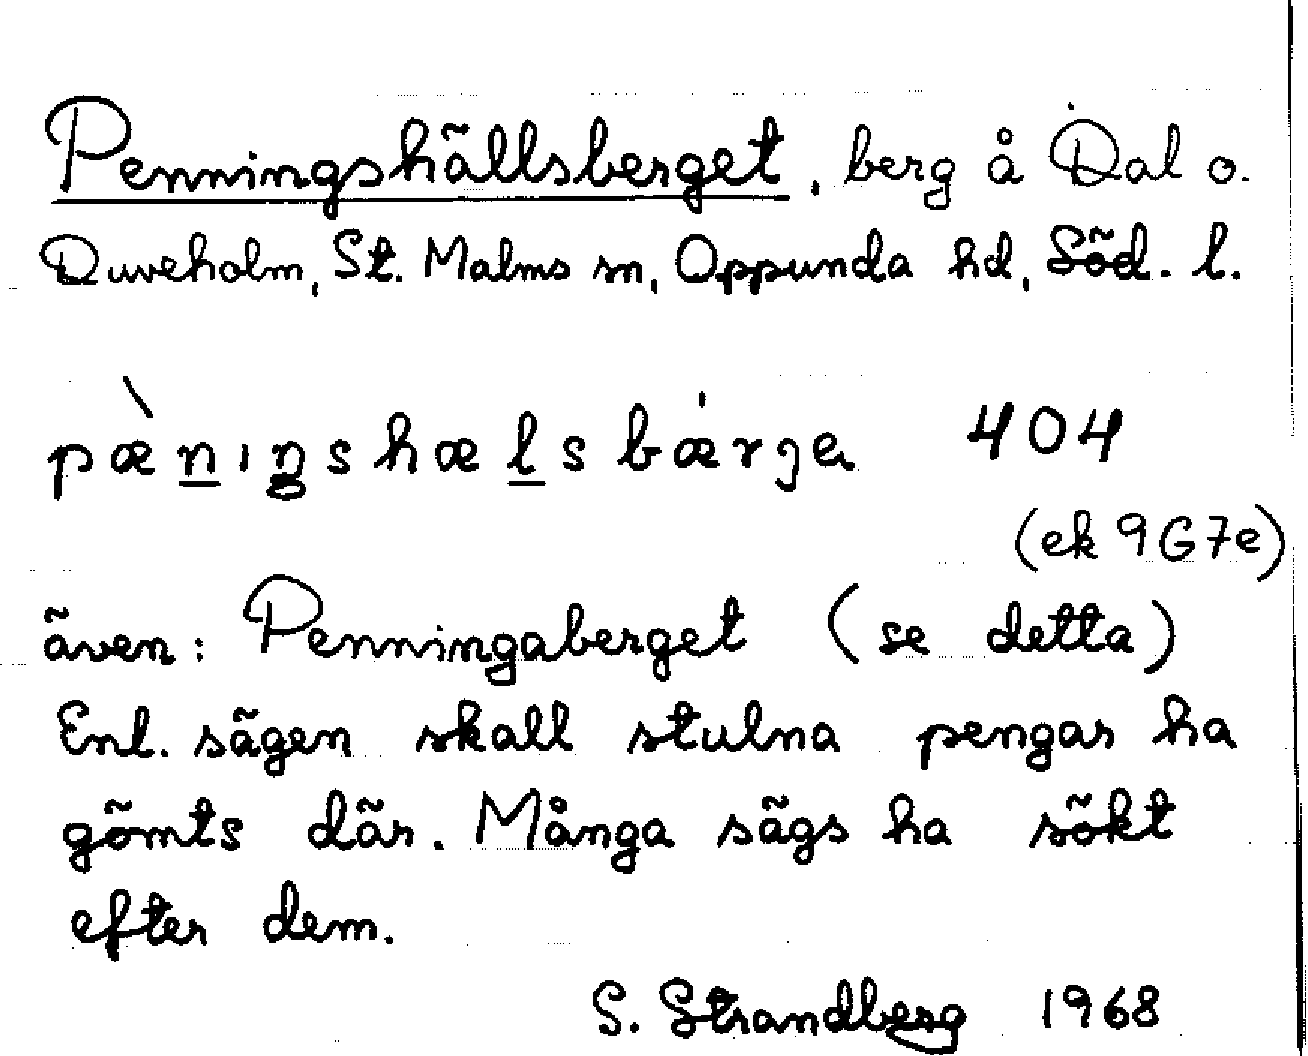 Penningshällsberget, berg å Dal o.
Duveholm, St. Malms sn, Oppunda hd, Söd. l.
pæ̀nıŋshælsbǽrɟa 404
(ek 9G7e)
även: Penningaberget (se detta)
Enl. sägen skall stulna pengar ha
gömts där. Många sägs ha sökt
efter dem.
S. Strandberg 1968